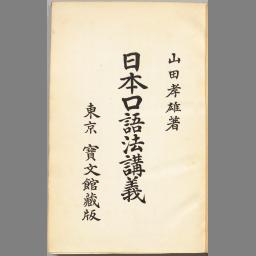 山田孝雄著
日本口語法講義
東京 寶文館藏版